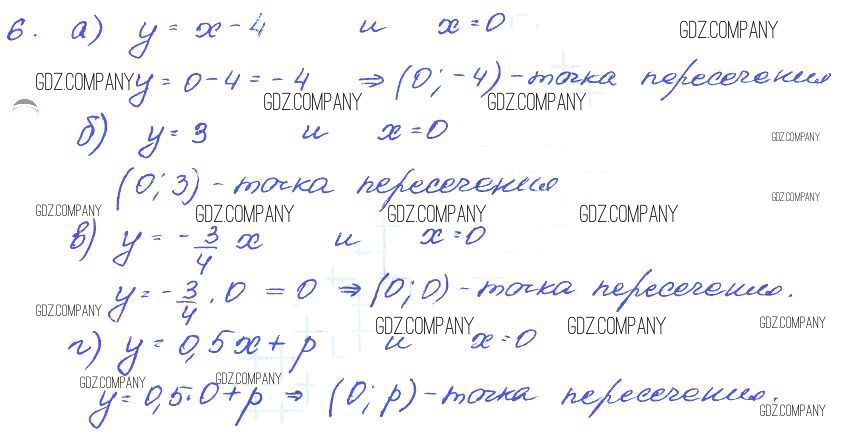 6. а) y = x - 4 и x = 0 GDZ.COMPANY
GDZ.COMPANY y = 0 - 4 = - 4 ⇒ (0; -4) - точка пересечения
GDZ.COMPANY GDZ.COMPANY
б) y = 3 и x = 0 GDZ.COMPANY
(0; 3) - точка пересечения GDZ.COMPANY
GDZ.COMPANY GDZ.COMPANY GDZ.COMPANY GDZ.COMPANY
в) y = - 3/4 x и x = 0
y = - 3/4 · 0 = 0 ⇒ (0; 0) - точка пересечения.
GDZ.COMPANY GDZ.COMPANY GDZ.COMPANY GDZ.COMPANY
г) y = 0,5x + p и x = 0
GDZ.COMPANY GDZ.COMPANY
y = 0,5·0 + p ⇒ (0; p) - точка пересечения.
GDZ.COMPANY